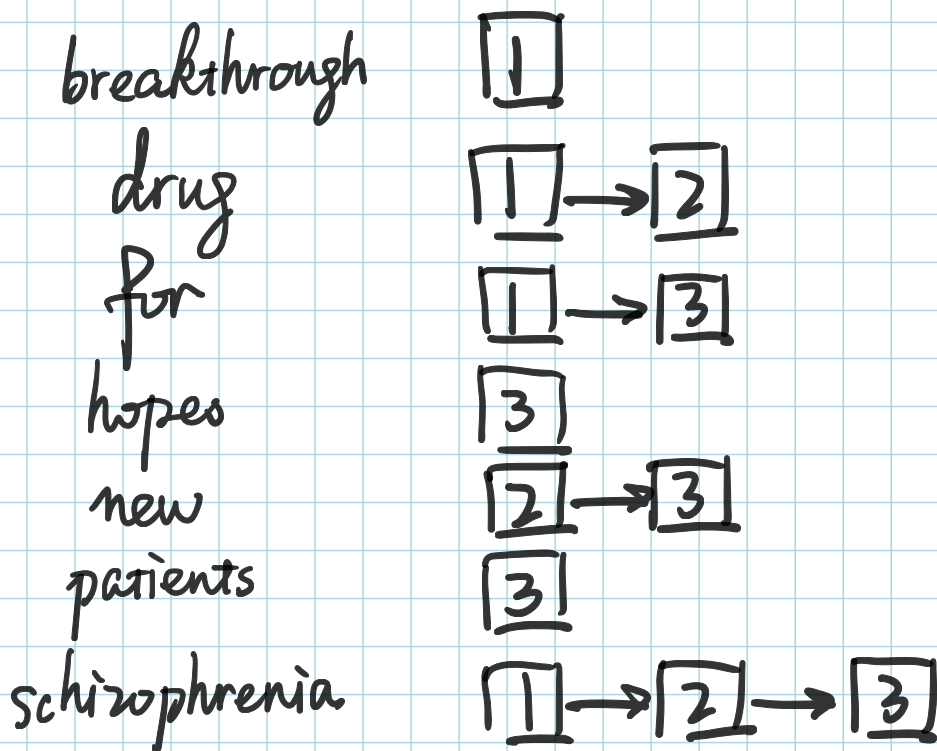 breakthrough 1
drug 1 → 2
for 1 → 3
hopes 3
new 2 → 3
patients 3
schizophrenia 1 → 2 → 3